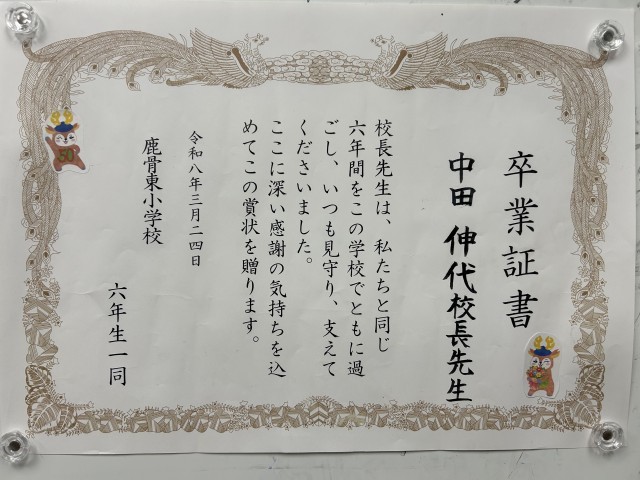 卒業証書
中田 伸代校長先生
校長先生は、私たちと同じ
六年間をこの学校でともに過
ごし、いつも見守り、支えて
くださいました。
ここに深い感謝の気持ちを込
めてこの賞状を贈ります。
令和八年三月二四日
鹿骨東小学校
六年生一同
50